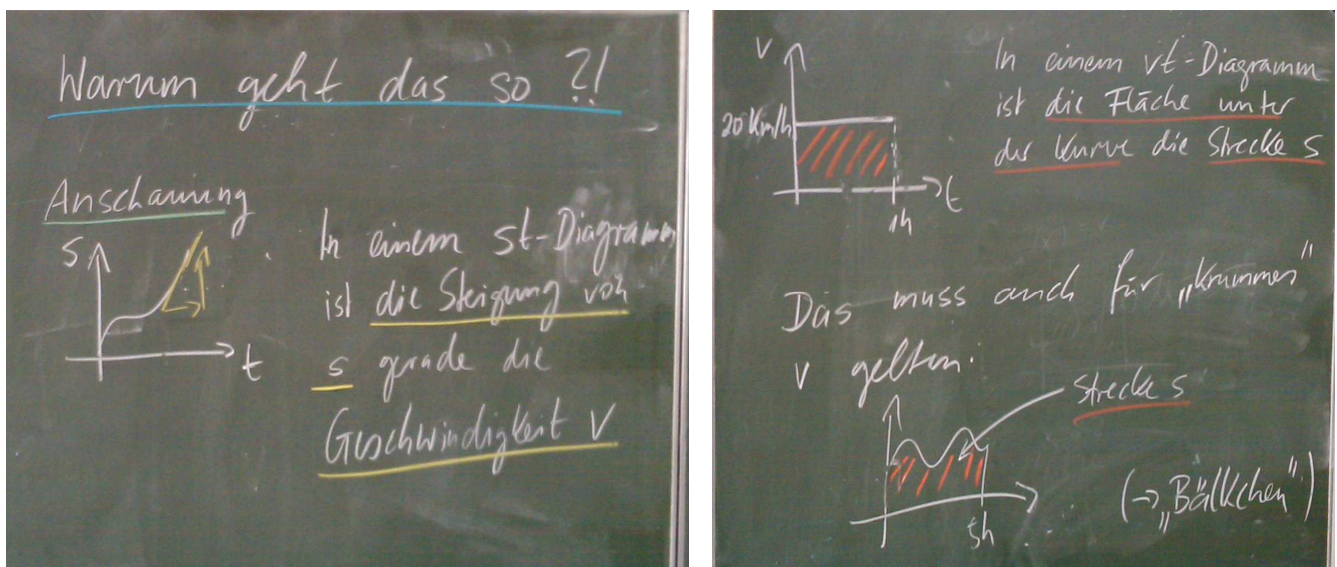 Warum geht das so ?!
Anschauung
s
t
In einem st-Diagramm
ist die Steigung von
s gerade die
Geschwindigkeit v
v
20 Km/h
t
1h
In einem vt-Diagramm
ist die Fläche unter
der Kurve die Strecke s
Das muss auch für „krummes"
v gelten:
Strecke s
5h
(→ „Bälkchen")